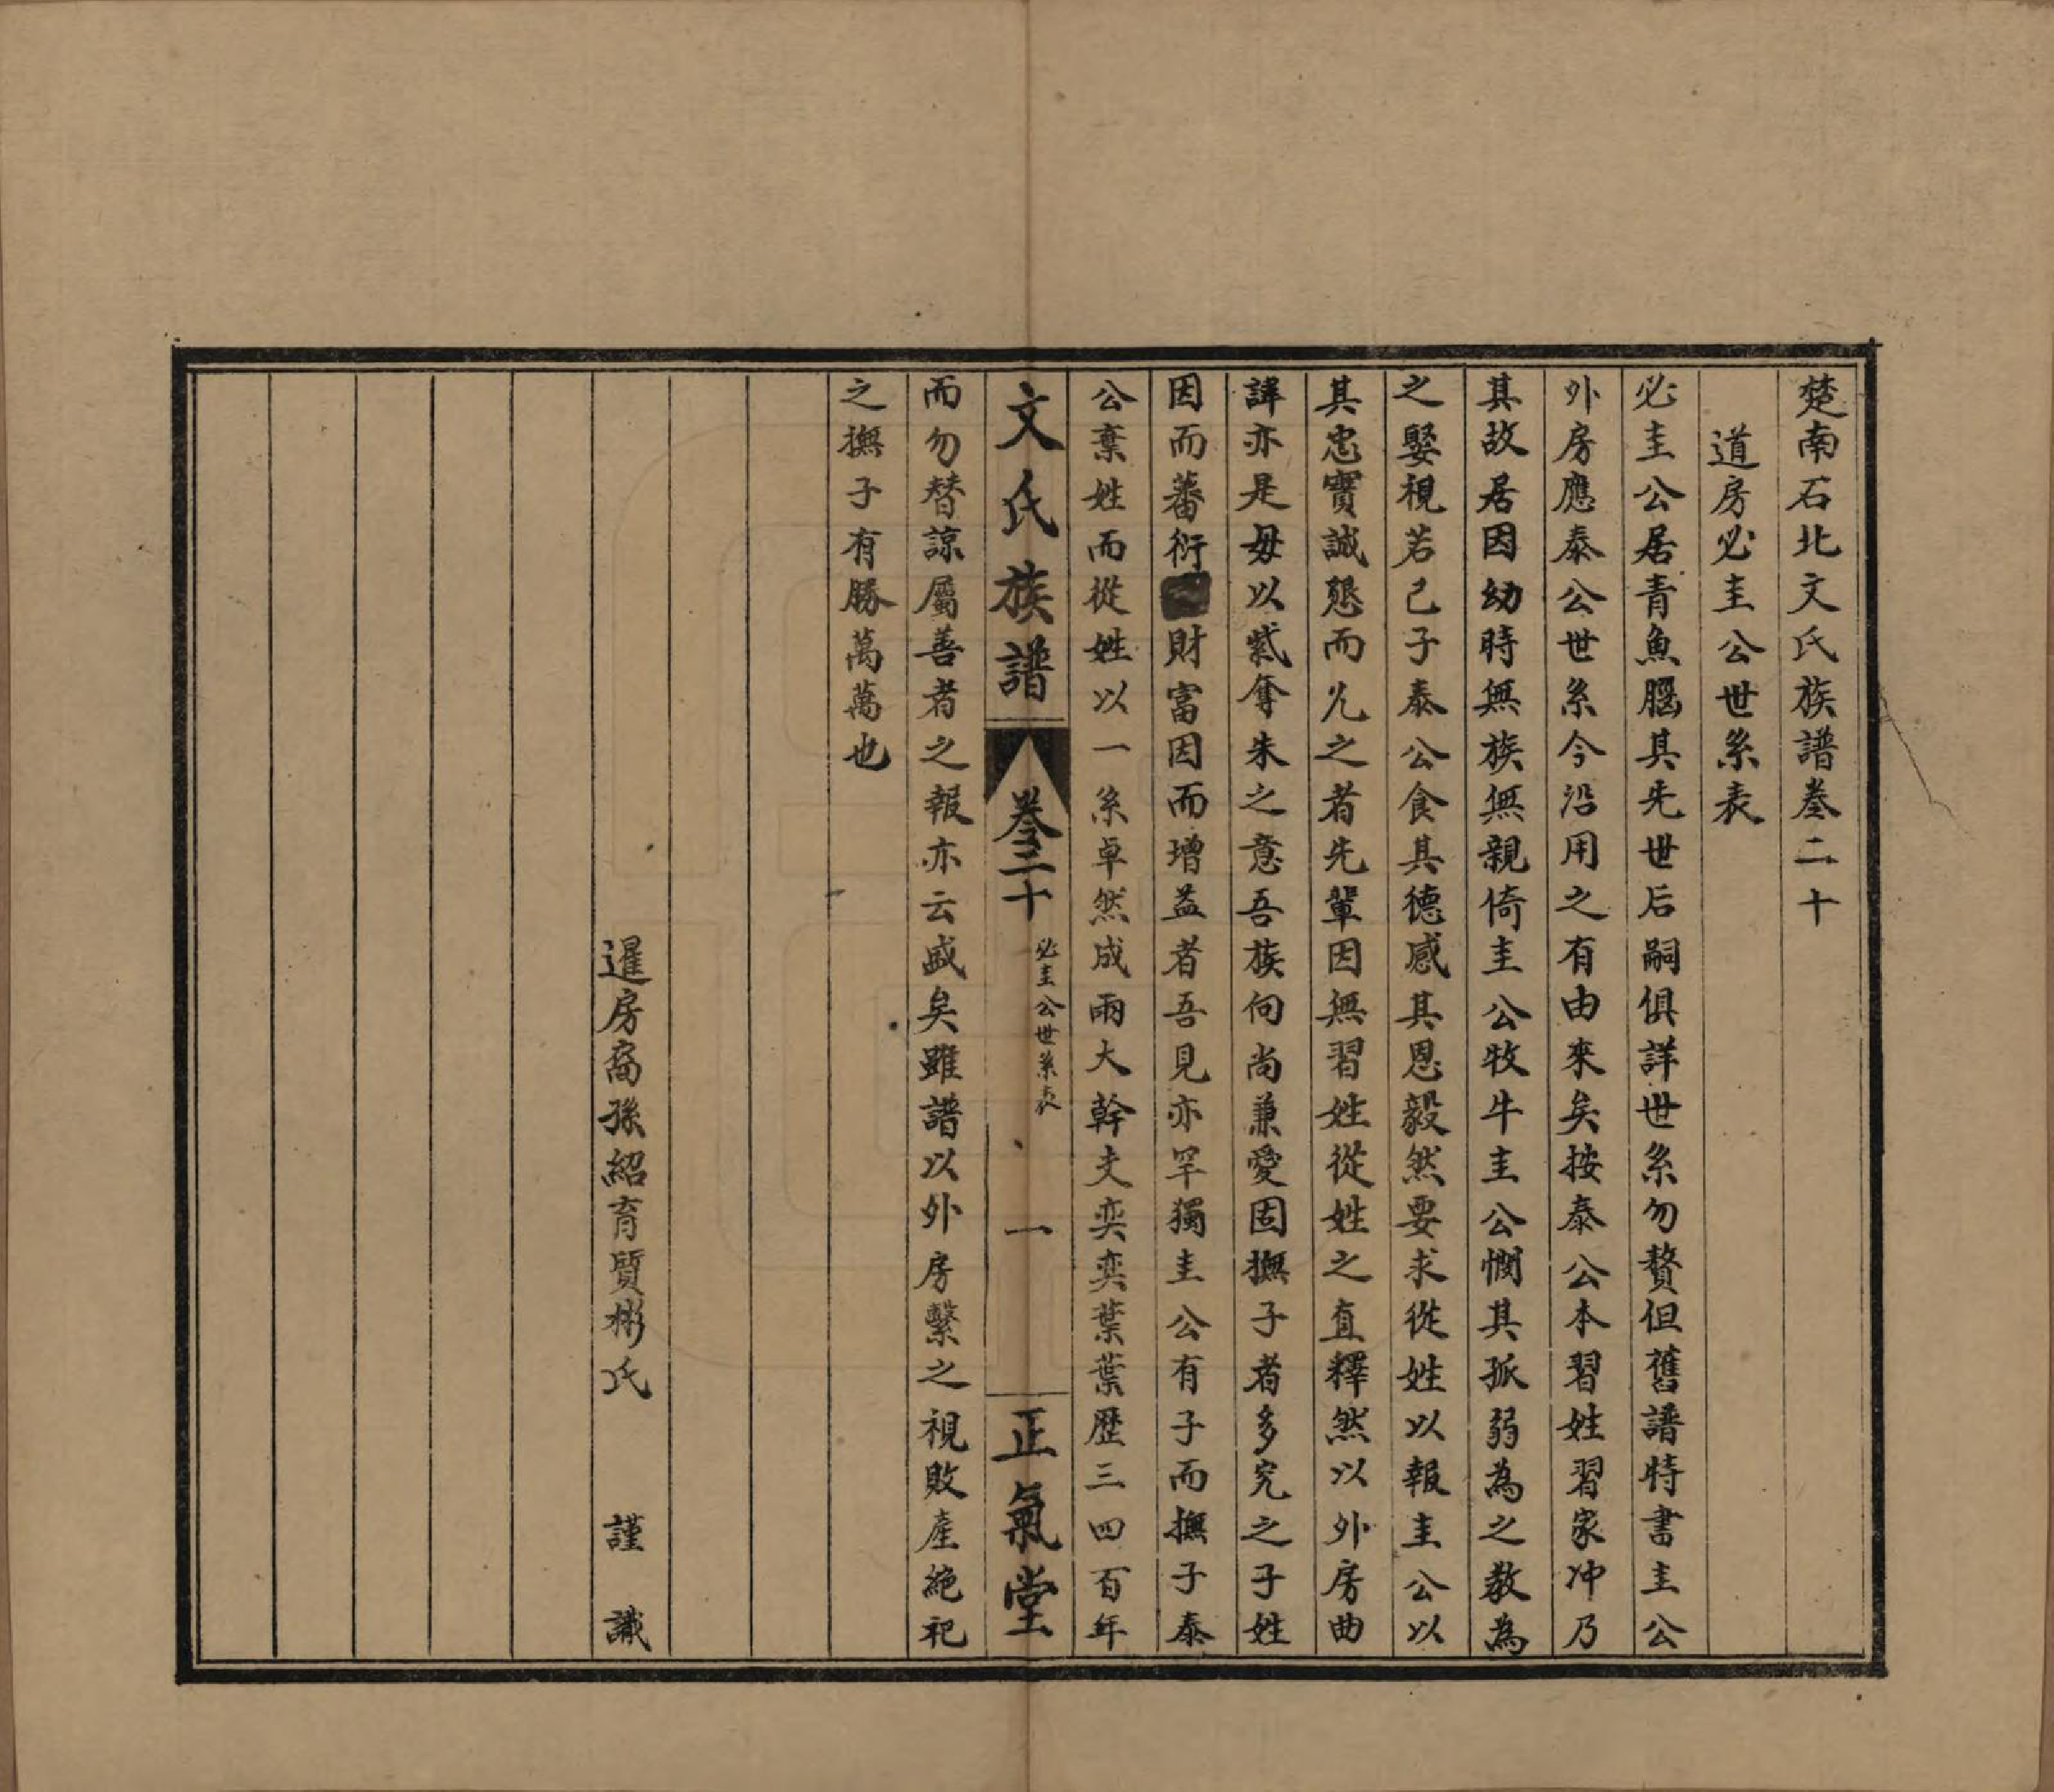 楚南石北文氏族譜卷二十
道房必圭公世系表
必圭公居青魚腦其先世后嗣俱詳世系勿贅但舊譜特書圭公
外房應泰公世系今沿用之有由來矣按泰公本習姓習家冲乃
其故居因幼時無族無親倚圭公牧牛圭公憫其孤弱為之教為
之娶視若己子泰公食其德感其恩毅然要求從姓以報圭公以
其忠實誠懇而允之者先輩因無習姓從姓之直釋然以外房曲
諱亦是毋以紫奪朱之意吾族向尚兼愛固撫子者多究之子姓
因而蕃衍財富因而增益者吾見亦罕獨圭公有子而撫子泰
公棄姓而從姓以一系卓然成兩大幹支奕奕葉葉歷三四百年
文氏族譜
卷二十
必圭公世系表
一
正氣堂
而勿替諒屬善者之報亦云盛矣雖譜以外房繫之視敗產絶祀
之撫子有勝萬萬也
暹房裔孫紹育質彬氏 謹識